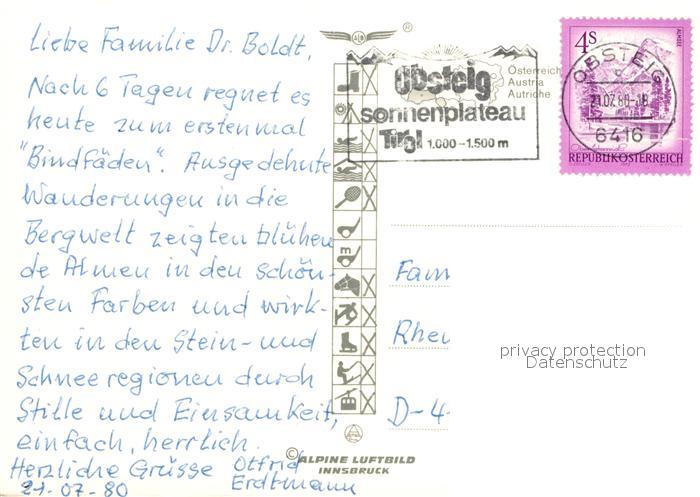 Liebe Familie Dr. Boldt,
Nach 6 Tagen regnet es
heute zum erstenmal
"Bindfäden". Ausgedehnte
Wanderungen in die
Bergwelt zeigten blühen
de Almen in den schön-
sten Farben und wirk-
ten in den Stein- und
Schneeregionen durch
Stille und Einsamkeit,
einfach, herrlich.
Herzliche Grüsse Otfrid
Erdtmann
21-07-80
®
Obsteig
sonnenplateau
Tirol 1.000-1.500 m
Österreich
Austria
Autriche
4S
ALMSEE
OBSTEIG
6416
REPUBLIK ÖSTERREICH
m
Fam
Rhei
D-4
privacy protection
Datenschutz
© ALPINE LUFTBILD
INNSBRUCK